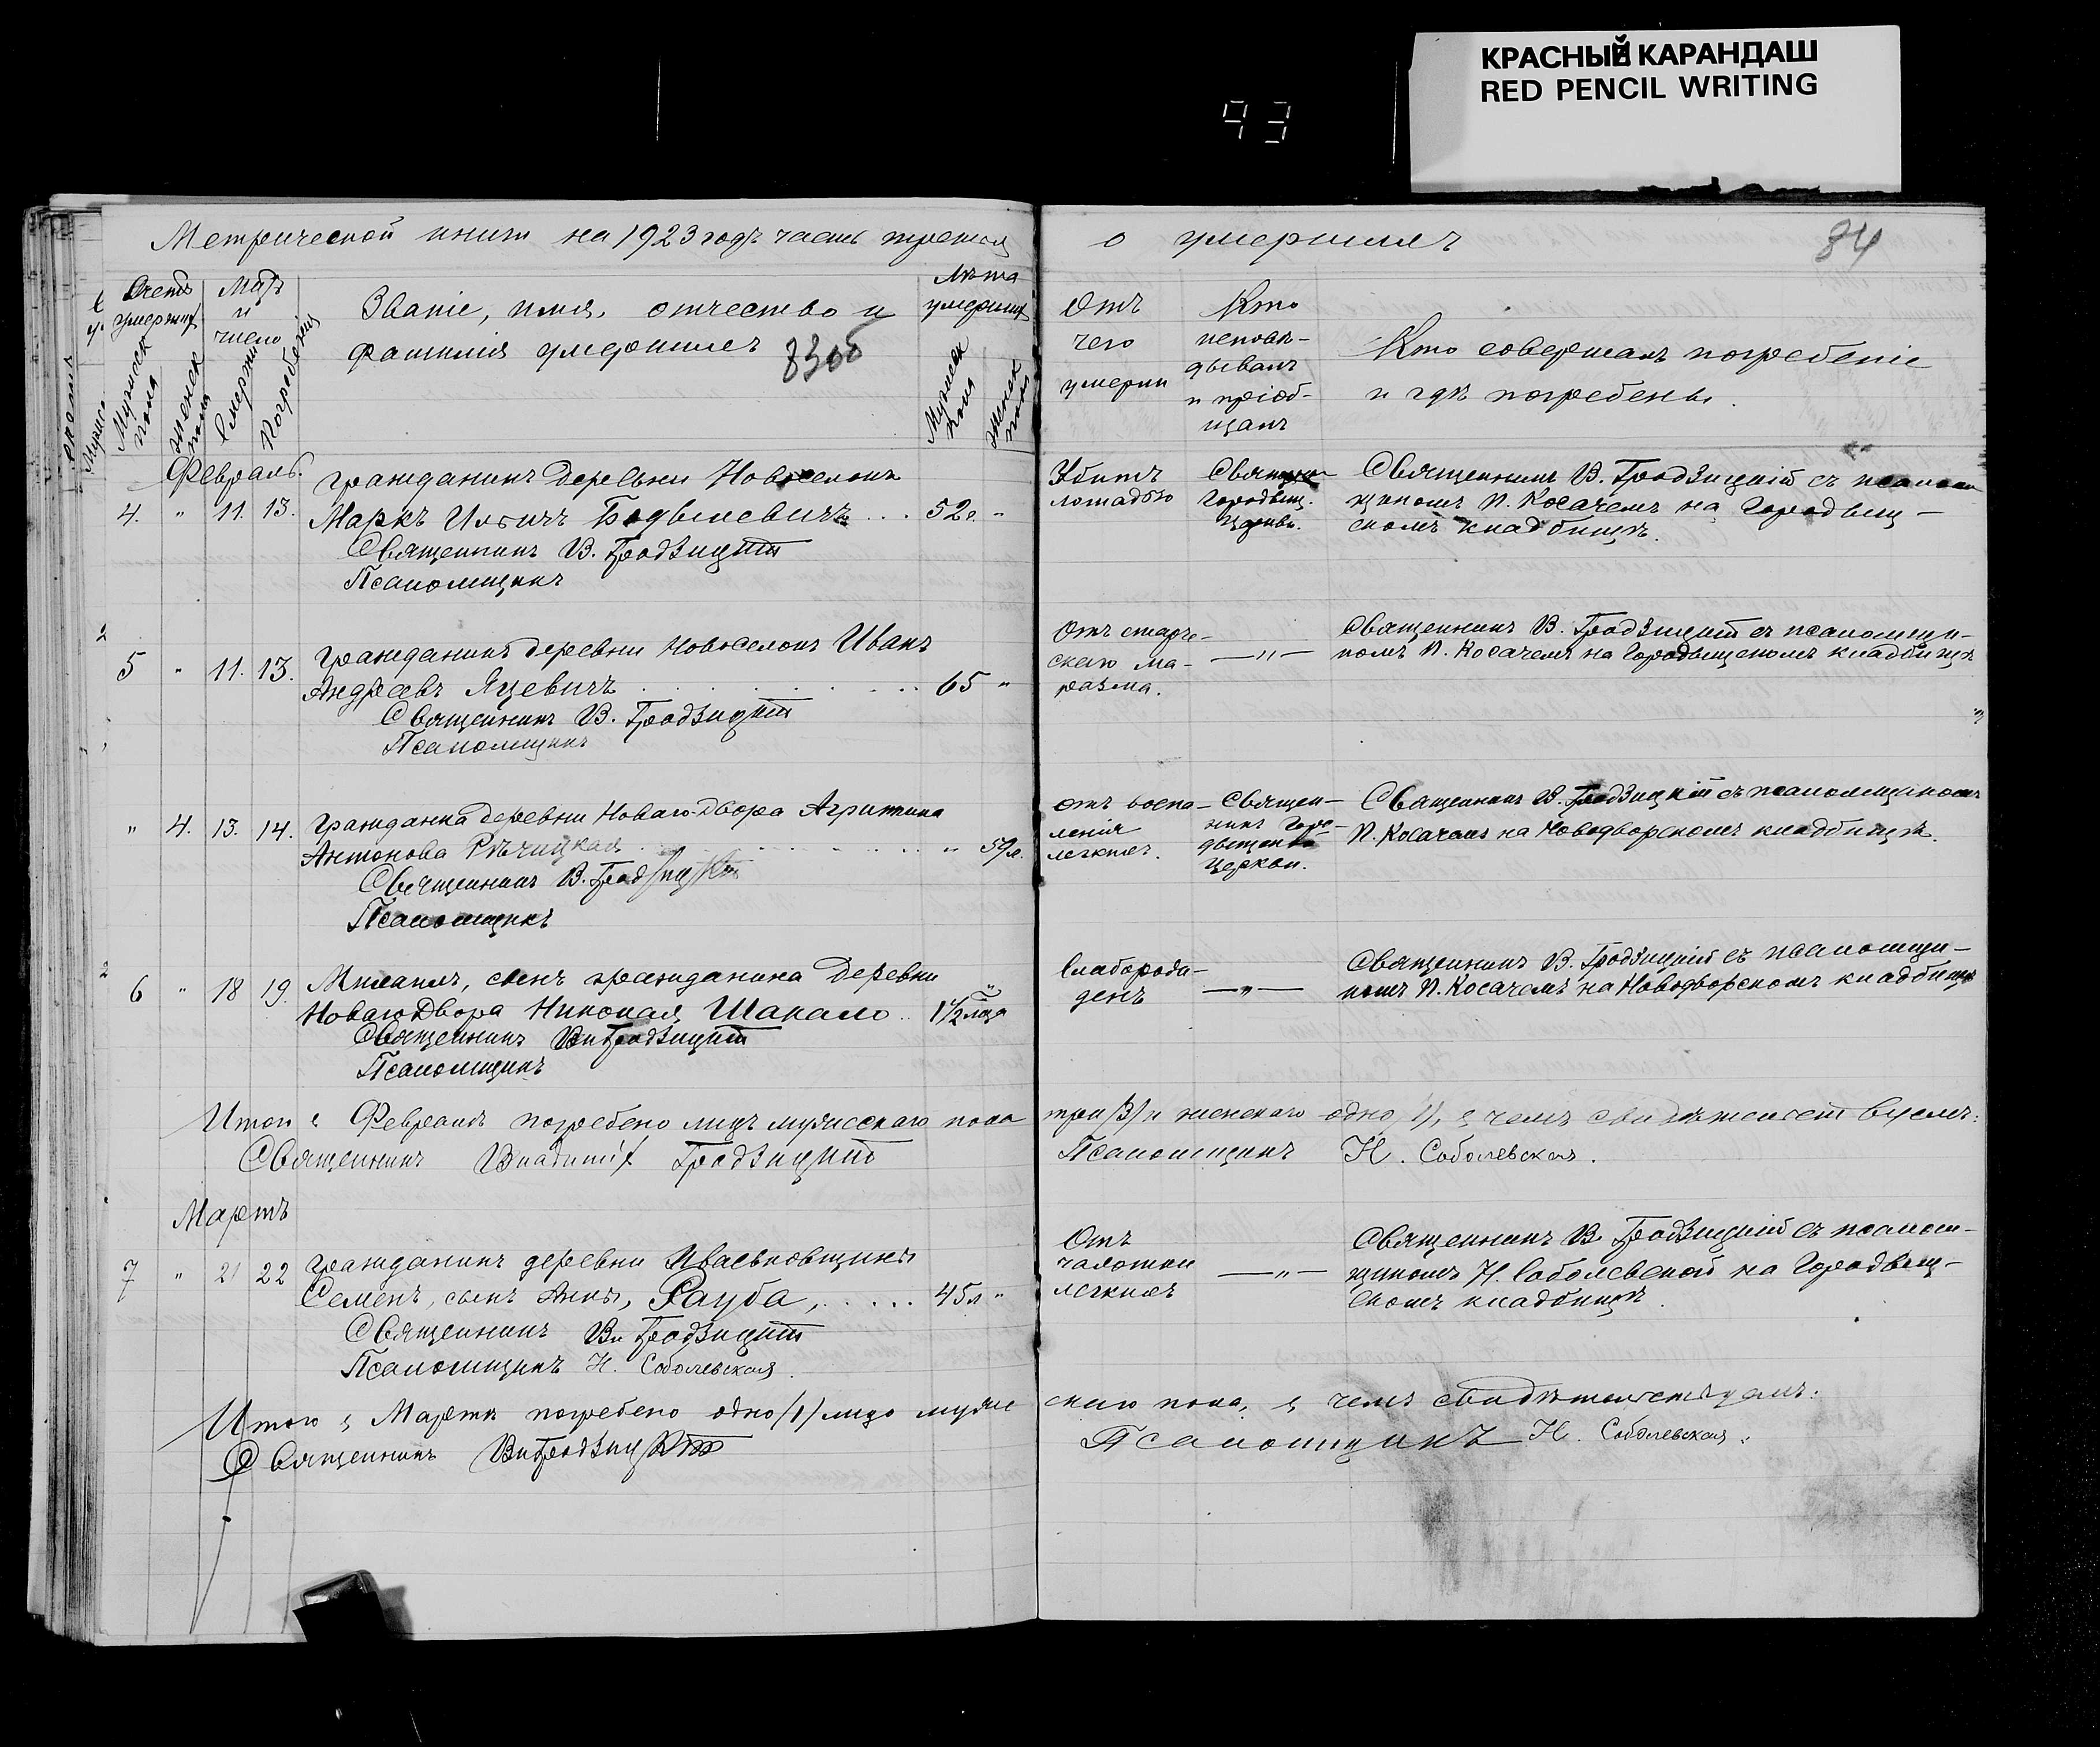 КРАСНЫЙ КАРАНДАШ
RED PENCIL WRITING
93
84
Метрической книги на 1923 годъ часть третья о умершихъ
Счетъ умершихъ
Мужеск пола
Женск пола
Мѣс. и число
Смерти
Погребенія
Званіе, имя, отчество и
фамилія умершихъ
83об
Лѣта умершихъ
Мужеск пола
Женск пола
Отъ
чего
умерли
Кто
исповѣ-
дывалъ
и пріоб-
щалъ
Кто совершалъ погребеніе
и гдѣ погребены.
Февраль.
4. " 11. 13.
Гражданинъ деревни Новоселокъ
Маркъ Ильичъ ... 52л. "
Священникъ В. Гродзицкій
Псаломщикъ
Убитъ
лошадью
Священ
Городищ.
церкви.
Священникъ В. Гродзицкій съ псалом
щикомъ П. Косачемъ на Городыщ-
скомъ кладбищѣ.
5 " 11. 13.
Гражданинъ деревни Новоселокъ Иванъ
Андреевъ Яцевичъ ... 65 "
Священникъ В. Гродзицкій
Псаломщикъ
Отъ старче-
скаго ма-
разма.
— " —
Священникъ В. Гродзицкій съ псаломщи-
комъ П. Косачемъ на Городыщскомъ кладбищѣ
" 4. 13. 14.
Гражданка деревни Новаго-Двора Агрипина
Антонова Рѣчицкая ... " 59л.
Священникъ В. Гродзицкій
Псаломщикъ
отъ воспа-
ленія
легкихъ.
Священ-
никъ Горо-
дыщской
церкви.
Священникъ В. Гродзицкій съ псаломщикомъ
П. Косачемъ на Новодворскомъ кладбищѣ.
6 " 18 19.
Михаилъ, сынъ гражданина деревни
Новаго Двора Николая Шакало .. 1½ "
Священникъ Вл. Гродзицкій
Псаломщикъ
Слаборож-
денъ
— " —
Священникъ В. Гродзицкій съ псаломщи-
комъ П. Косачемъ на Новодворскомъ кладбищѣ
Итого в Февралѣ погребено лицъ мужескаго пола три /3/ и женскаго одно /1/, в чемъ
Священникъ Владиміръ Гродзицкій
Псаломщикъ Н. Соболевская.
Мартъ
7 " 21 22
Гражданинъ деревни Иваськовщины
Семенъ, сынъ Анны, Рауба, ..... 45л "
Священникъ Вл. Гродзицкій
Псаломщикъ Н. Соболевская.
Отъ
чахотки
легкихъ
— " —
Священникъ В. Гродзицкій съ псалом-
щикомъ Н. Соболевской на Городыщ-
скомъ кладбищѣ.
Итого в Мартѣ погребено одно /1/ лицо муже скаго пола, в чемъ свидѣтельствуемъ:
Священникъ Вл. Гродзицкій
Псаломщикъ Н. Соболевская.